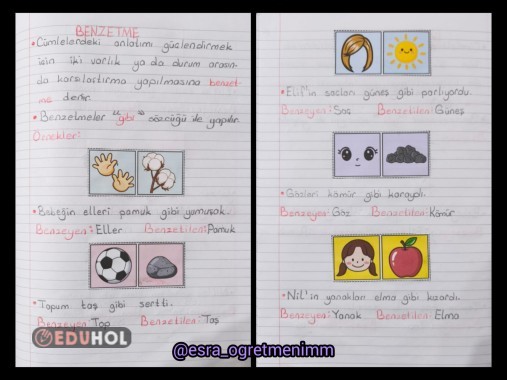 BENZETME
• Cümlelerdeki anlatımı güçlendirmek
için iki varlık ya da durum arasın-
da karşılaştırma yapılmasına benzet-
me denir.
• Benzetmeler "gibi" sözcüğü ile yapılır.
Örnekler:
• Bebeğin elleri pamuk gibi yumuşak.
Benzeyen: Eller Benzetilen: Pamuk
• Topum taş gibi sertti.
Benzeyen: Top Benzetilen: Taş
EDUHOL
• Elif'in saçları güneş gibi parlıyordu.
Benzeyen: Saç Benzetilen: Güneş
• Gözleri kömür gibi karaydı.
Benzeyen: Göz Benzetilen: Kömür
• Nil'in yanakları elma gibi kızardı.
Benzeyen: Yanak Benzetilen: Elma
@esra_ogretmenimm